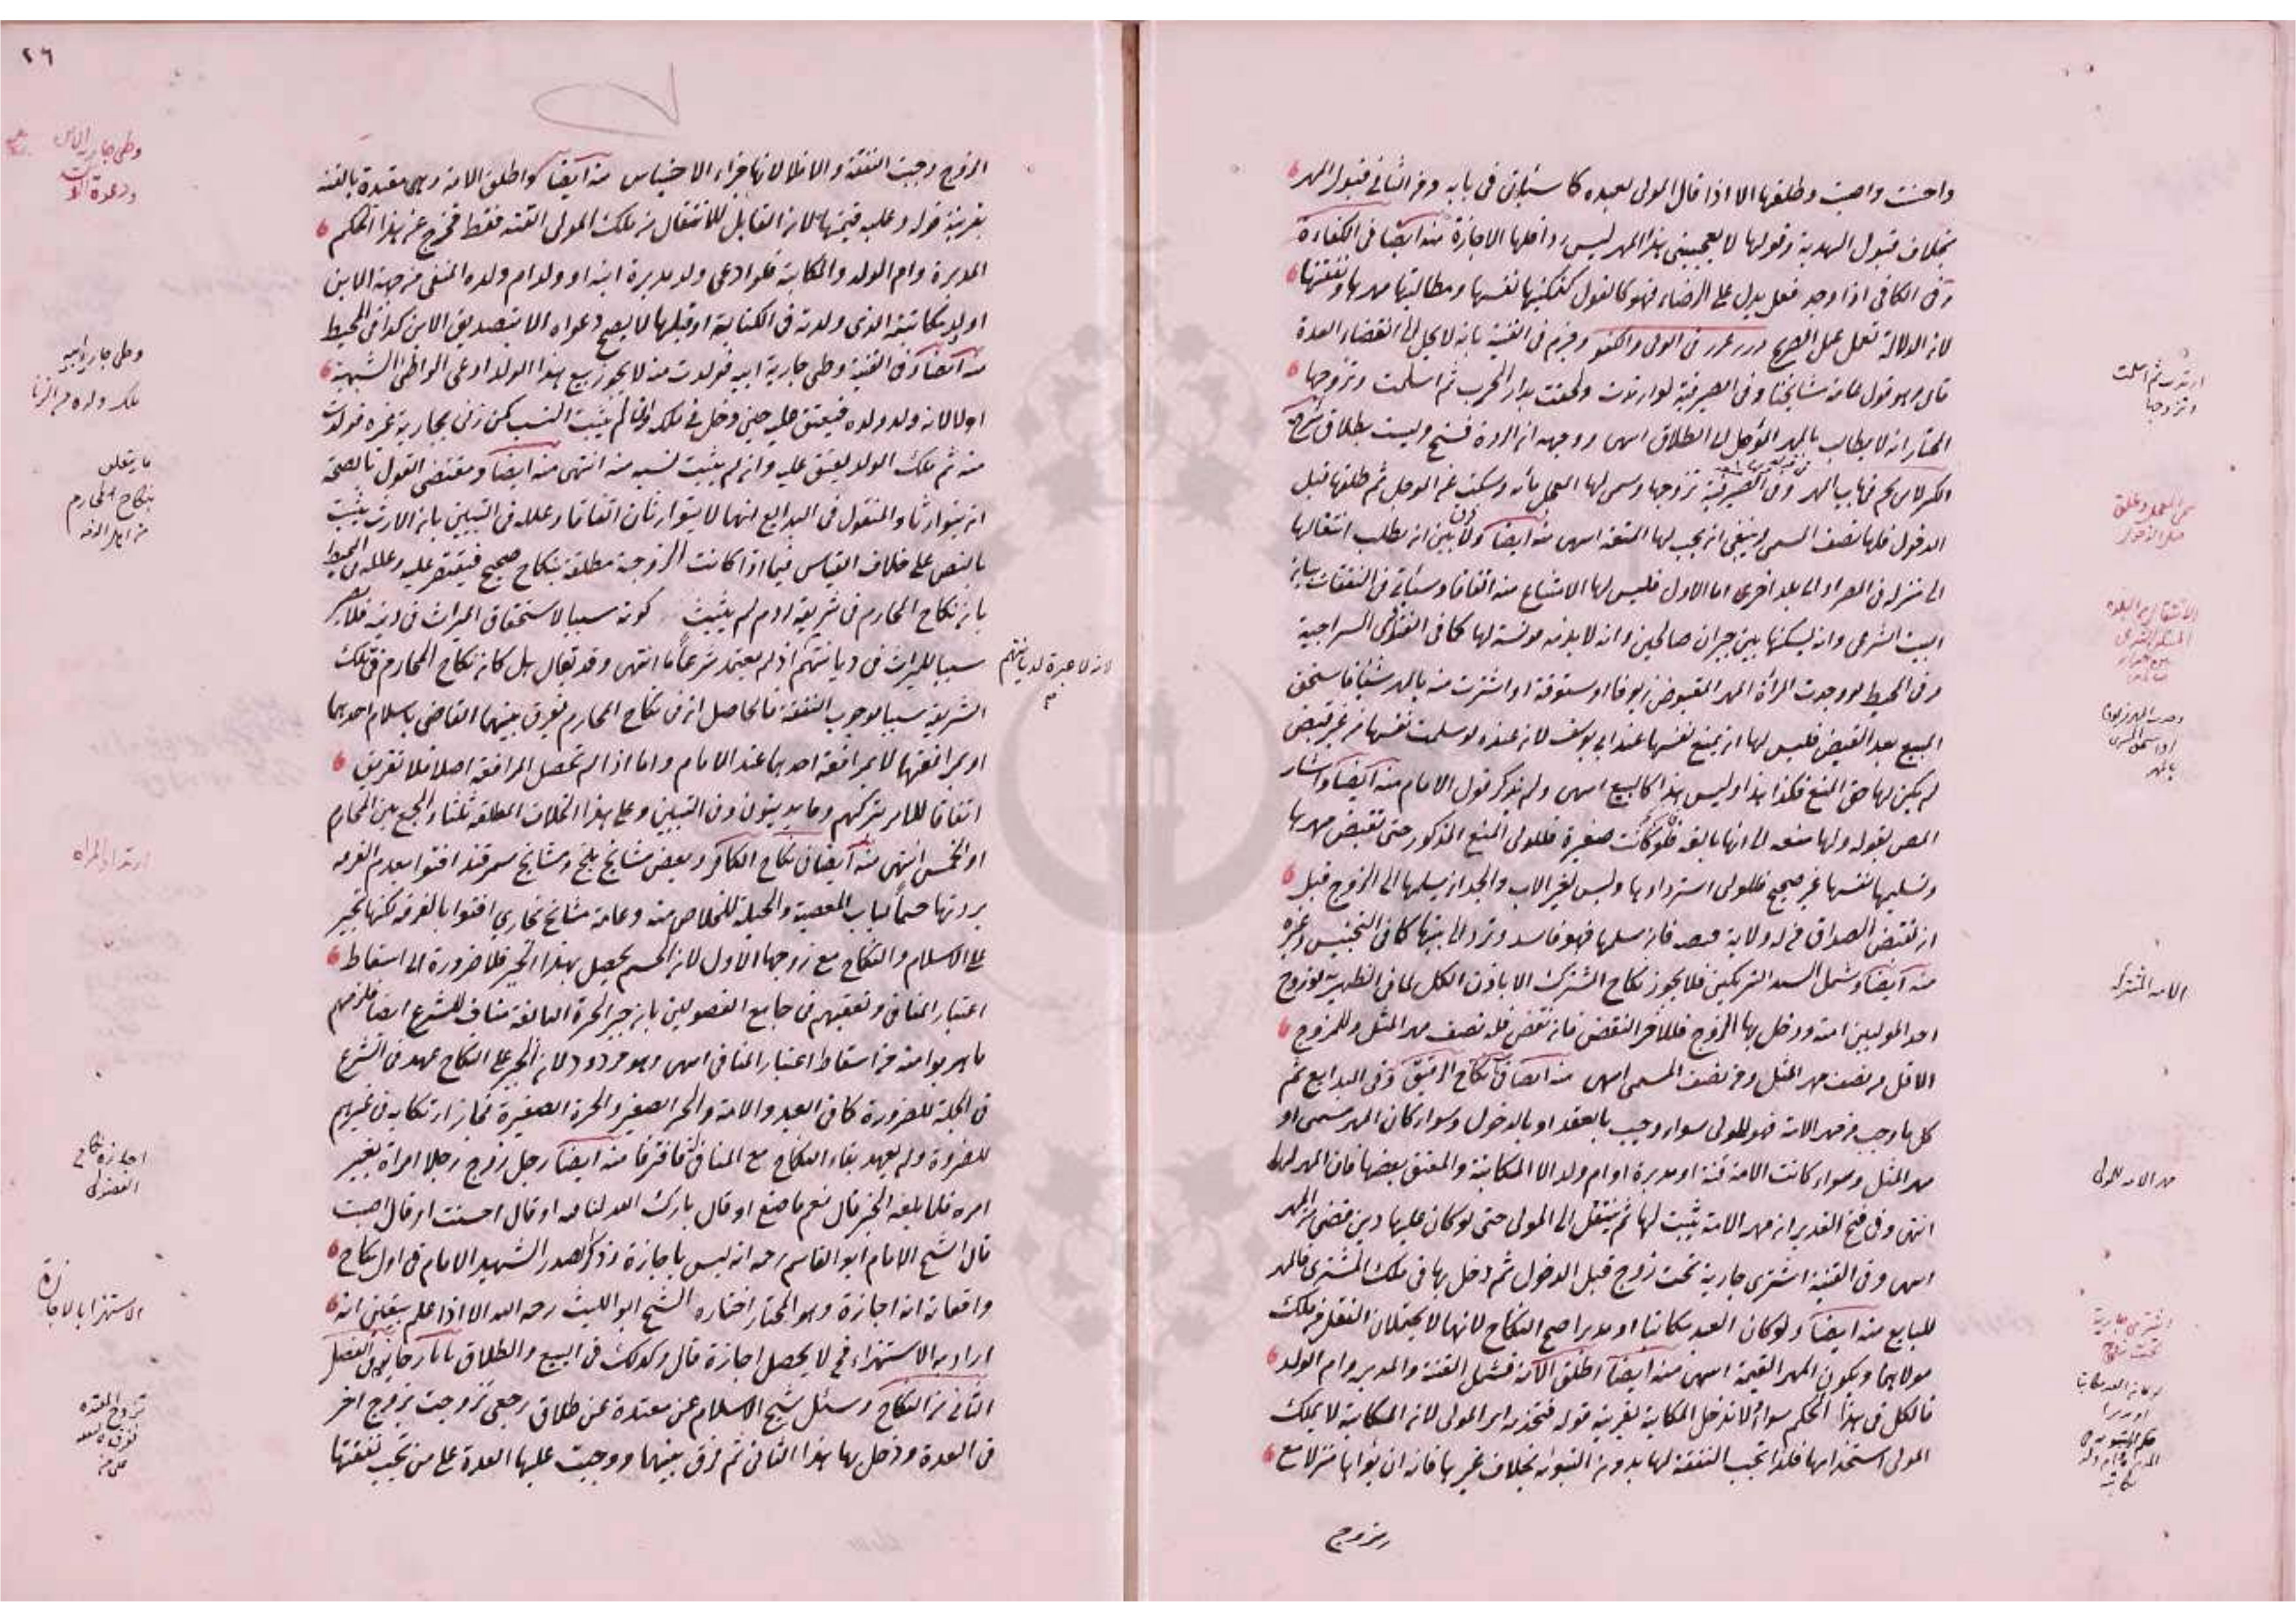 واحسنت واصبت وطلقها الا اذا قال المولى لعبده كما سيأتي في بابه ومن الثاني قبول المهر
بخلاف قبول الهدية وقولها لا يعجبني هذا المهر ليس رد افلها الاجازة منه ايضا في الكفاءة
وفي الكافي اذا وجد فعل يدل على الرضاء فهو كالقول كتمكينها نفسها ومطالبتها مهرها ونفقتها
لان الدلالة تعمل عمل الصريح درر غرر في الولي والكفو وجزم في القنية بانه لا يحل الى انقضاء العدة
قال وهو قول عامة مشايخنا وفي الصيرفية لو ارتدت ولحقت بدار الحرب ثم اسلمت وتزوجها
المختار انه لا يطالب بالمهر المؤجل الى الطلاق انتهى ووجهه ان الردة فسخ وليست بطلاق شرح
الكنز لابن نجيم في باب المهر وفي الصيرفية تزوجها وسمى لها المعجل بأنه وسكت عن المؤجل ثم طلقها قبل
الدخول فلها نصف المسمى وينبغي ان يجب لها المتعة انتهى منه ايضا ولا بين ان يطلب انتقالها
الى منزله في المصر او الى بلد اخرى اما الاول فليس لها الامتناع منه اتفاقا وسيأتي في النفقات بيان
البيت الشرعي وانه يسكنها بين جيران صالحين وانه لا بد من مونسة لها كما في الفتاوى السراجية
وفي المحيط لو وجدت المرأة المهر المقبوض زيوفا او ستوقة او اشترت منه بالمهر شيئا فاستحق
المبيع بعد القبض فليس لها ان تمنع نفسها عند ابي يوسف لان عنده لو سلمت نفسها من غير قبض
لم يكن لها حق المنع فكذا هذا وليس هذا كالبيع انتهى ولم يذكر قول الامام منه ايضا واشار
المص بقوله ولها منعه الى انها بالغة فلو كانت صغيرة فللولي المنع المذكور حتى تقبض مهرها
وتسليمها نفسها غير صحيح فللولي استردادها وليس لغير الاب والجد ان يسلمها الى الزوج قبل
ان تقبض الصداق من له ولاية قبضه فان سلمها فهو فاسد وترد الى بيتها كما في التجنيس وغيره
منه ايضا وشمل السيد الشريكين فلا يجوز نكاح المشترك الا باذن الكل لما في الظهيرية لو زوج
احد الموليين امته ودخل بها الزوج فللآخر النقض فان نقض فله نصف مهر المثل وللمزوج
الاقل من نصف مهر المثل ومن نصف المسمى انتهى منه ايضا في نكاح الرقيق وفي البدايع ثم
كل ما وجب من مهر الامة فهو للمولى سواء وجب بالعقد او بالدخول وسواء كان المهر مسمى او
مهر المثل وسواء كانت الامة قنة او مدبرة او ام ولد الا المكاتبة والمعتق بعضها فان المهر لها
انتهى وفي فتح القدير ان مهر الامة يثبت لها ثم ينتقل الى المولى حتى لو كان عليها دين قضى من المهر
انتهى وفي القنية اشترى جارية تحت زوج قبل الدخول ثم دخل بها في ملك المشتري فالمهر
للبايع منه ايضا ولو كان العبد مكاتبا او مدبرا صح النكاح لانهما لا يحتملان النقل من ملك
مولاهما ويكون المهر القيمة انتهى منه ايضا اطلق الامة فشمل القنة والمدبره وام الولد
فالكل في هذا الحكم سواء ولا تدخل المكاتبة بقرينة قوله فتخدمه اي المولى لان المكاتبة لا يملك
المولى استخدامها فلذا تجب النفقة لها بدون التبوئة بخلاف غيرها فانه ان بوأها منزلا مع
الزوج
ارتدت ثم اسلمت
وتزوجها
الامة المشتركة
مهر الامة للمولى
اشترى جارية
تحت زوج
٢٦
الزوج وجبت النفقة والا فلا لانها جزاء الاحتباس منه ايضا واطلق الامة وهي مقيدة بالقنة
بقرينة قوله وعليه قيمتها لان القابل للانتقال من ملك المولى القنة فقط فخرج عن هذا الحكم
المدبرة وام الولد والمكاتبة فلو ادعى ولد مدبرة ابنه او ولد ام ولده المنفي من جهة الابن
او ولد مكاتبته الذي ولدته في الكتابة او قبلها لا يصح دعواه الا بتصديق الابن كذا في المحيط
منه ايضا وفي القنية وطئ جارية ابيه فولدت منه لا يجوز بيع هذا الولد ادعى الواطئ الشبهة
اولا لانه ولد ولده فيعتق عليه حين دخل في ملكه وان لم يثبت النسب كمن زنى بجارية غيره فولدت
منه ثم ملك الولد يعتق عليه وان لم يثبت نسبه منه انتهى منه ايضا ومقتضى القول بالصحة
ان يتوارثا والمنقول في البدايع انهما لا يتوارثان اتفاقا وعلله في التبيين بان الارث يثبت
بالنص على خلاف القياس فيما اذا كانت الزوجية مطلقة بنكاح صحيح فيقتصر عليه وعلله في المحيط
بان نكاح المحارم في شريعة ادم لم يثبت كونه سببا لاستحقاق الميراث في دينه فلا يصير
سببا للميراث في ديانتهم اذ لم يعتمد شرعا ما انتهى وقد يقال هل كان نكاح المحارم في تلك
لانه لا عبرة لديانتهم
الشريعة سببا لوجوب النفقة فالحاصل ان في نكاح المحارم يفرق بينهما القاضي باسلام احدهما
او بمرافعتهما لا بمرافعة احدهما عند الامام واما اذا لم تحصل المرافعة اصلا فلا تفريق
اتفاقا للامر بتركهم وما يدينون وفي التبيين وعلى هذا الخلاف المطلقة ثلثا والجمع بين المحارم
او الخمس انتهى منه ايضا في نكاح الكافر وبعض مشايخ بلخ ومشايخ سمرقند افتوا بعدم الفرقة
بردتها حسما لباب المعصية والحيلة للخلاص منه وعامة مشايخ بخارى افتوا بالفرقة لكنها تجبر
على الاسلام والنكاح مع زوجها الاول لان الحسم يحصل بهذا الجبر فلا ضرورة الى اسقاط
اعتبار المنافي وتعقبهم في جامع الفصولين بان جبر الحرة البالغة مناف للشرع ايضا فلزمهم
ما هربوا منه من اسقاط اعتبار المنافي انتهى وهو مردود لان الجبر على النكاح عهد في الشرع
في الجملة للضرورة كما في العبد والامة والحر الصغير والحرة الصغيرة فجاز ارتكابه في غيرهم
للضرورة ولم يعهد بقاء النكاح مع المنافي فافترقا منه ايضا رجل زوج رجلا امرأة بغير
امره فلما بلغه الخبر قال نعم ما صنع او قال بارك الله لنا فيه او قال احسنت او قال اصبت
قال الشيخ الامام ابو القاسم رحمه انه ليس باجازة وذكر الصدر الشهيد الامام في اول نكاح
واقعاته انه اجازة وهو المختار اختاره الشيخ ابو الليث رحمه الله الا اذا علم بيقين انه
اراد به الاستهزاء فح لا يحصل اجازة قال وكذلك في البيع والطلاق تاتارخانية في الفصل
الثاني من النكاح وسئل شيخ الاسلام عن معتدة عن طلاق رجعي تزوجت بزوج اخر
في العدة ودخل بها هذا الثاني ثم فرق بينهما ووجبت عليها العدة على من تجب نفقتها
وطئ جارية ابيه
ما يتعلق
بنكاح المحارم
من اهل الذمة
ارتداد المراه
اجازة نكاح
الفضولي
الاستهزا بالاجازة